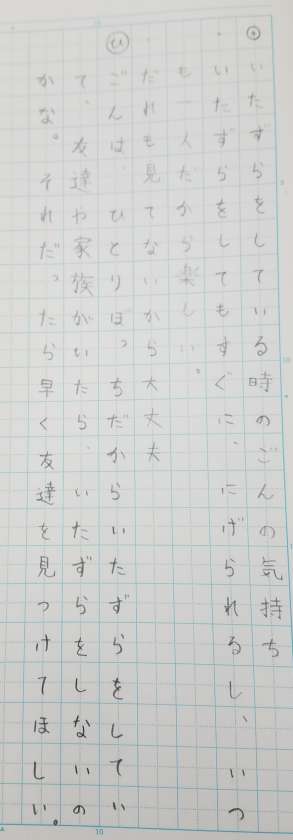 いたずらをしている時のごんの気持ち
いたずらをしてもすぐに、にげられるし、いつ
も一人だから楽しい。
だれも見てないから大丈夫
ひ
ごんは、ひとりぼっちだからいたずらをしてい
て、友達や家族がいたら、いたずらをしないの
かな。それだったら早く友達を見つけてほしい。